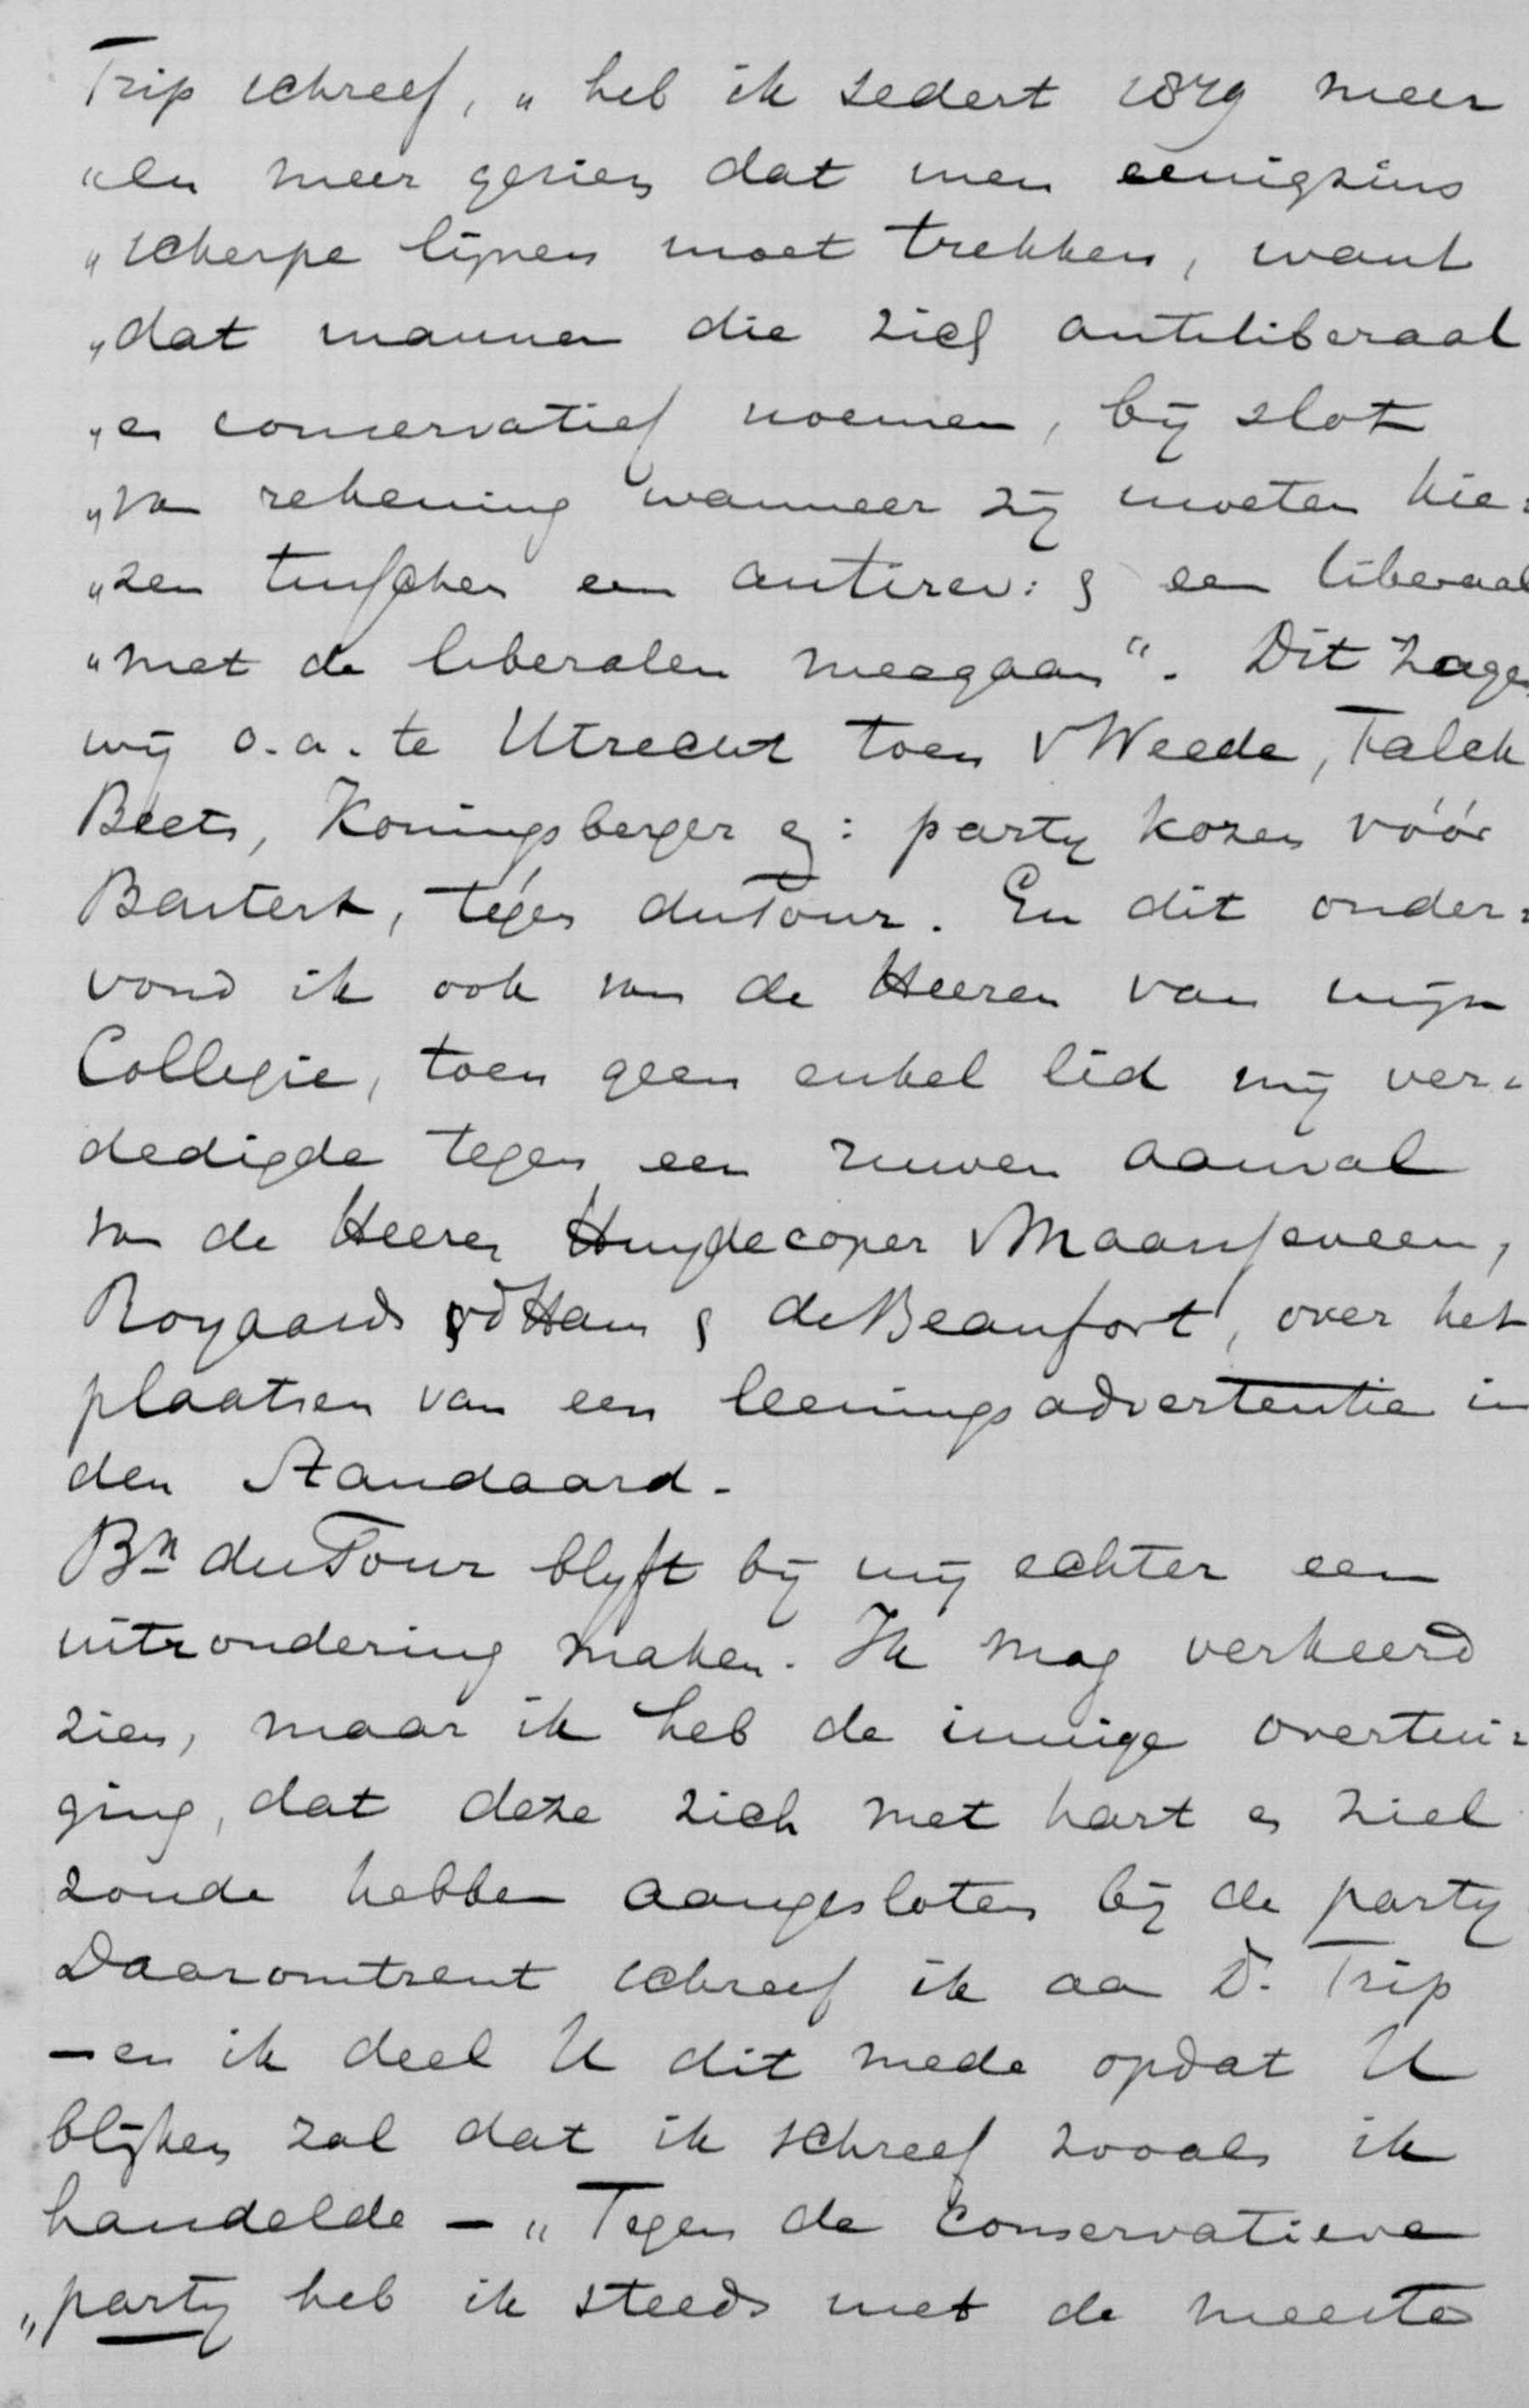 Trip schreef, „heb ik sedert 1879 meer
„en meer gezien dat men eenigzins
„scherpe lijnen moet trekken, want
„dat mannen die zich antiliberaal
„en conservatief noemen, bij slot
„van rekening wanneer zij moeten kie=
„zen tusschen een antirev: & een liberaal
„met de liberalen meegaan“. Dit zagen
wij o.a. te Utrecht toen v Weede, Falck
Beets, Koningsberger ej: party kozen vóór
Bastert, tégen duTour. En dit onder=
vond ik ook van de Heeren van mijn
Collegie, toen geen enkel lid mij ver=
dedigde tegen een ruwen aanval
van de Heeren Huydecoper v Maarseveen,
Royaards vd Ham & de Beaufort, over het
plaatsen van een leeningsadvertentie in
den Standaard.
Bn duTour blyft bij mij echter een
uitzondering maken. Ik mag verkeerd
zien, maar ik heb de innige overtui=
ging, dat deze zich met hart en ziel
zoude hebben aangesloten bij de party
Daaromtrent schreef ik aan D. Trip
— en ik deel U dit mede opdat U
blijken zal dat ik schreef zooals ik
handelde — „Tegen de conservatieve
„party heb ik steeds met de meeste